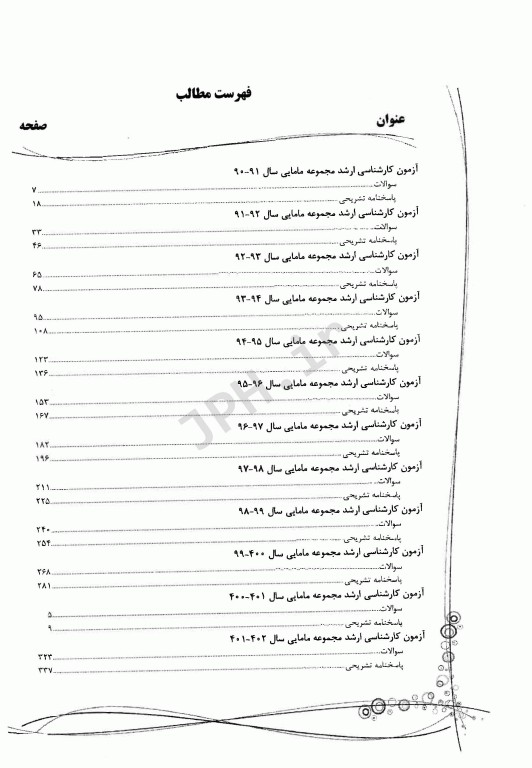 فهرست مطالب
عنوان صفحه
آزمون کارشناسی ارشد مجموعه مامایی سال ۹۱-۹۰
سوالات ۷
پاسخنامه تشریحی ۱۸
آزمون کارشناسی ارشد مجموعه مامایی سال ۹۲-۹۱
سوالات ۳۳
پاسخنامه تشریحی ۴۶
آزمون کارشناسی ارشد مجموعه مامایی سال ۹۳-۹۲
سوالات ۶۵
پاسخنامه تشریحی ۷۸
آزمون کارشناسی ارشد مجموعه مامایی سال ۹۴-۹۳
سوالات ۹۵
پاسخنامه تشریحی ۱۰۸
آزمون کارشناسی ارشد مجموعه مامایی سال ۹۵-۹۴
سوالات ۱۲۳
پاسخنامه تشریحی ۱۳۶
آزمون کارشناسی ارشد مجموعه مامایی سال ۹۶-۹۵
سوالات ۱۵۳
پاسخنامه تشریحی ۱۶۷
آزمون کارشناسی ارشد مجموعه مامایی سال ۹۷-۹۶
سوالات ۱۸۲
پاسخنامه تشریحی ۱۹۶
آزمون کارشناسی ارشد مجموعه مامایی سال ۹۸-۹۷
سوالات ۲۱۱
پاسخنامه تشریحی ۲۲۵
آزمون کارشناسی ارشد مجموعه مامایی سال ۹۹-۹۸
سوالات ۲۴۰
پاسخنامه تشریحی ۲۵۴
آزمون کارشناسی ارشد مجموعه مامایی سال ۴۰۰-۹۹
سوالات ۲۶۸
پاسخنامه تشریحی ۲۸۱
آزمون کارشناسی ارشد مجموعه مامایی سال ۴۰۱-۴۰۰
سوالات ۵
پاسخنامه تشریحی ۹
آزمون کارشناسی ارشد مجموعه مامایی سال ۴۰۲-۴۰۱
سوالات ۳۲۳
پاسخنامه تشریحی ۳۳۷
JPH.ir